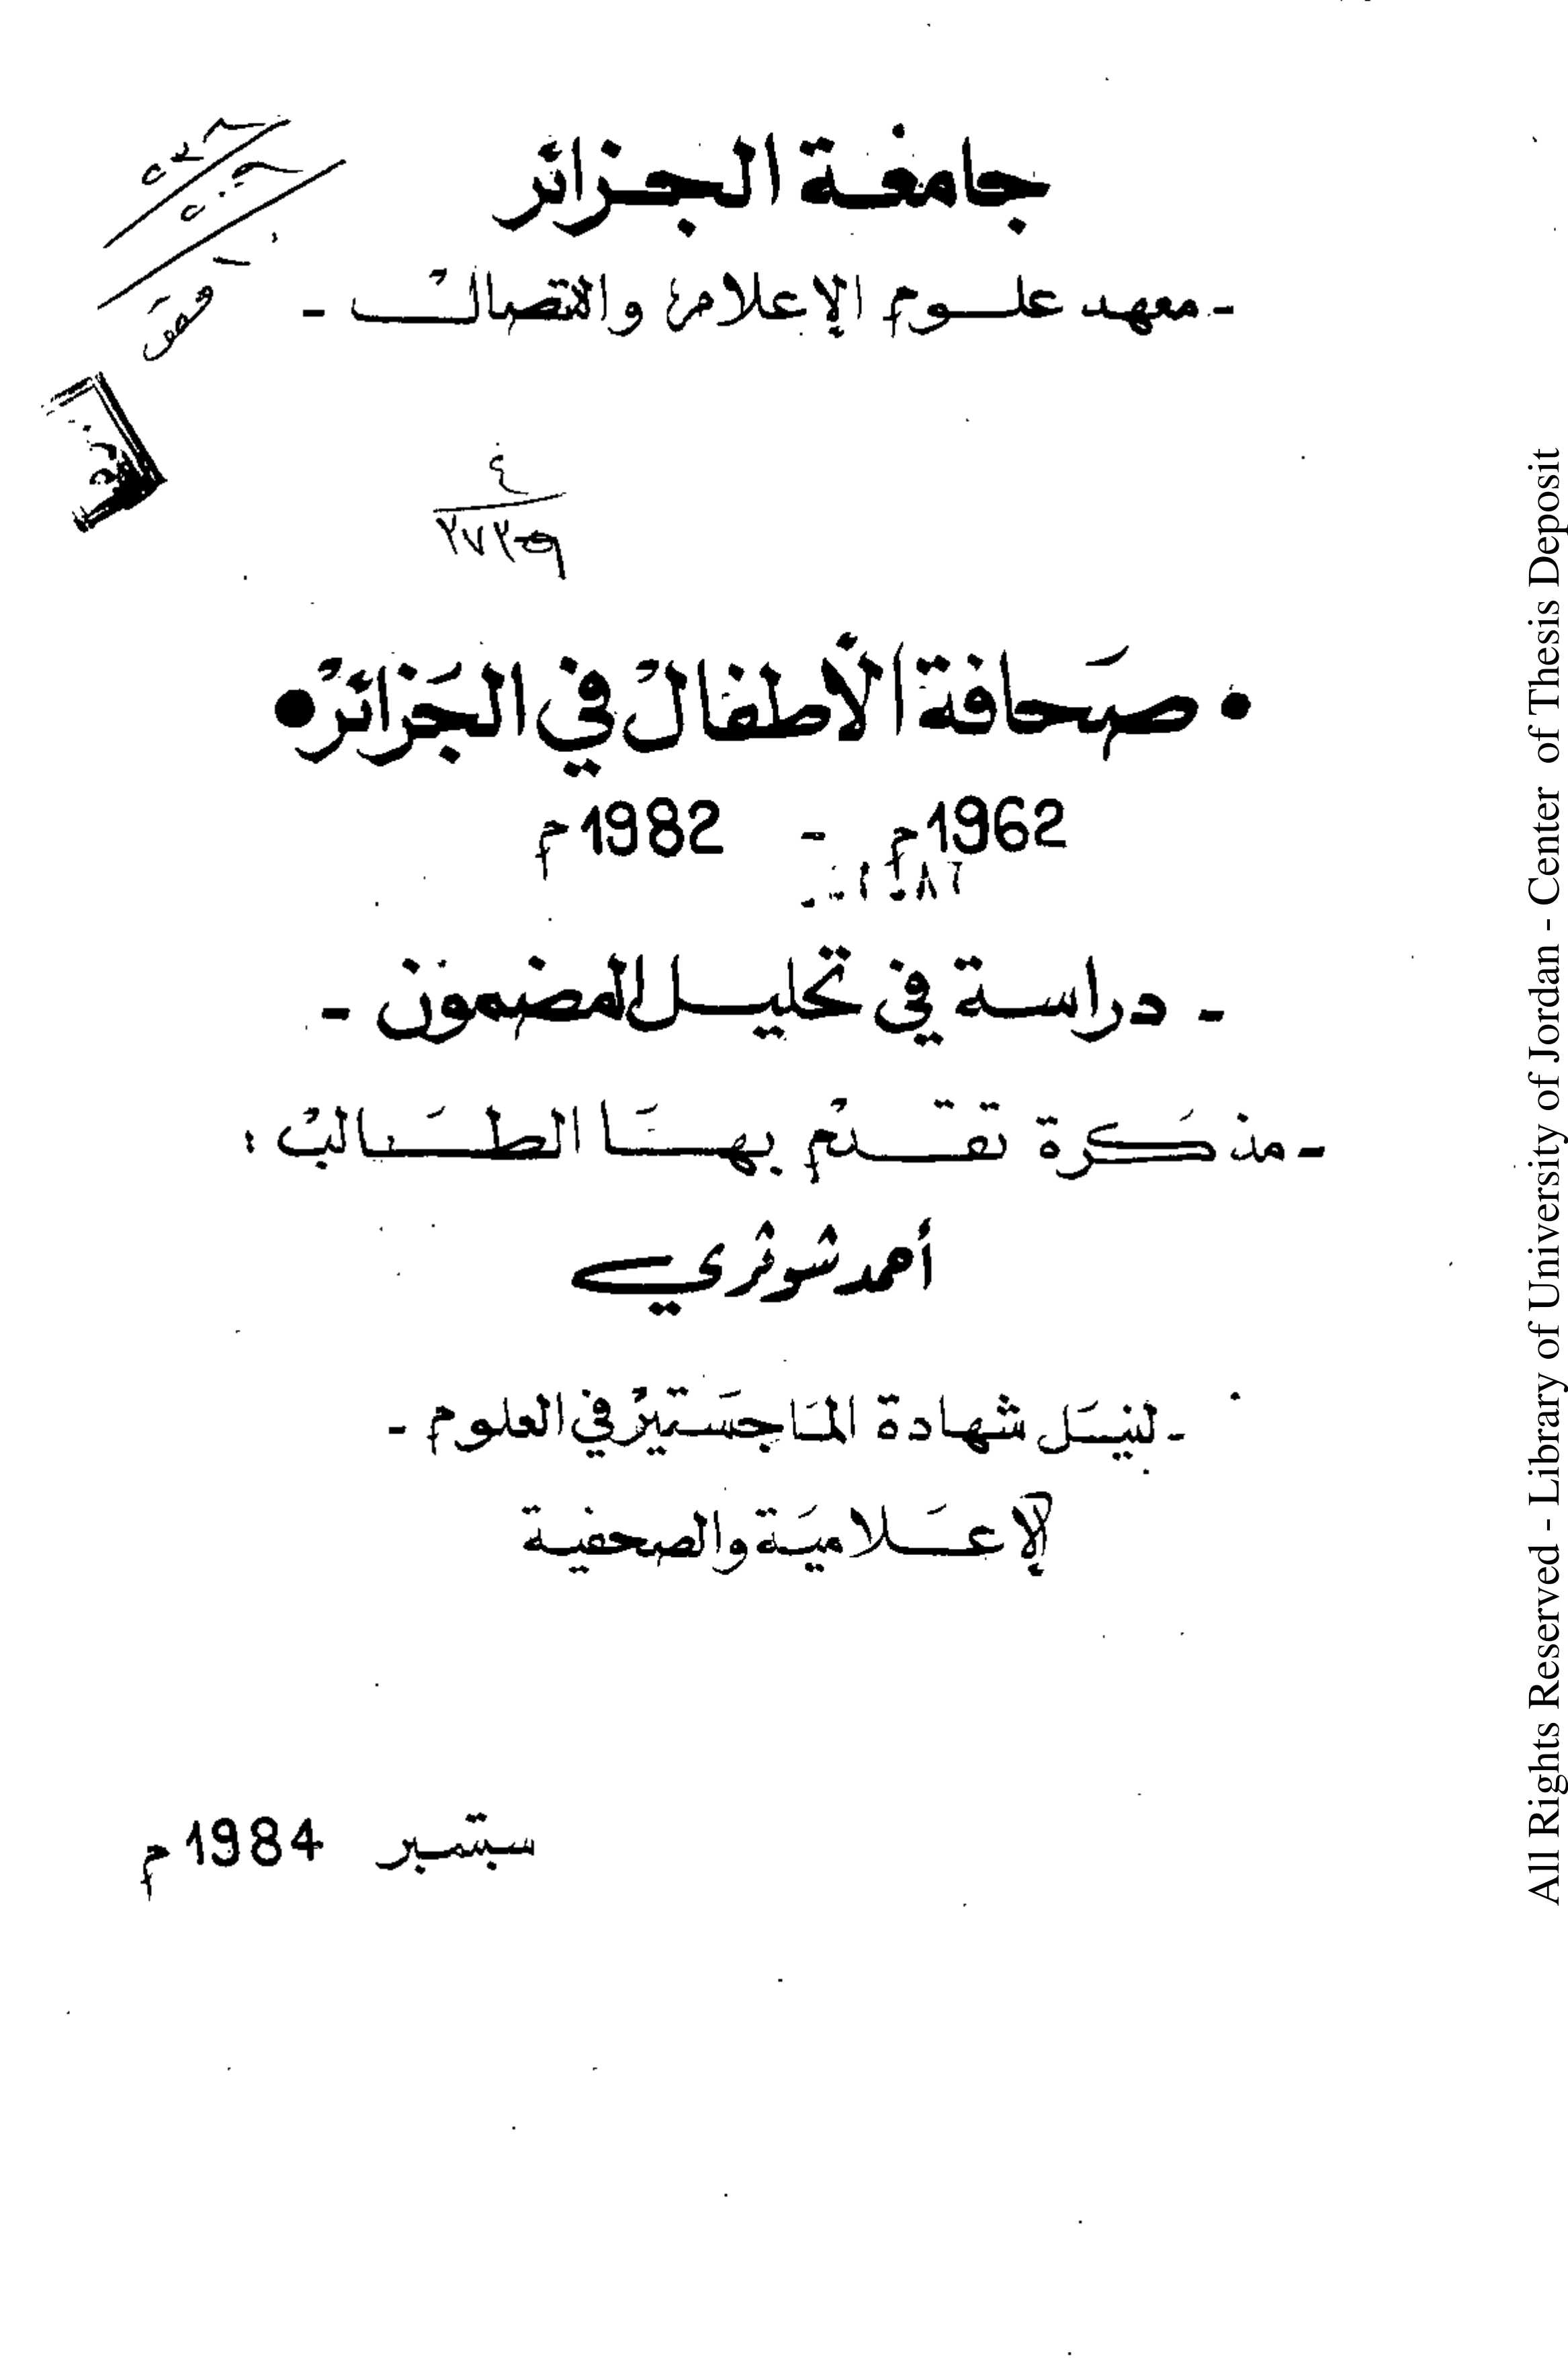 جامعة الجزائر
- معهد علوم الإعلام والاتصال -
• صحافة الأطفال في الجزائر •
1962م - 1982م
- دراسة في تحليل المضمون -
- مذكرة تقدم بها الطالب :
أحمد شوتري
- لنيل شهادة الماجستير في العلوم -
الإعلامية والصحفية
سبتمبر 1984م
All Rights Reserved - Library of University of Jordan - Center of Thesis Deposit